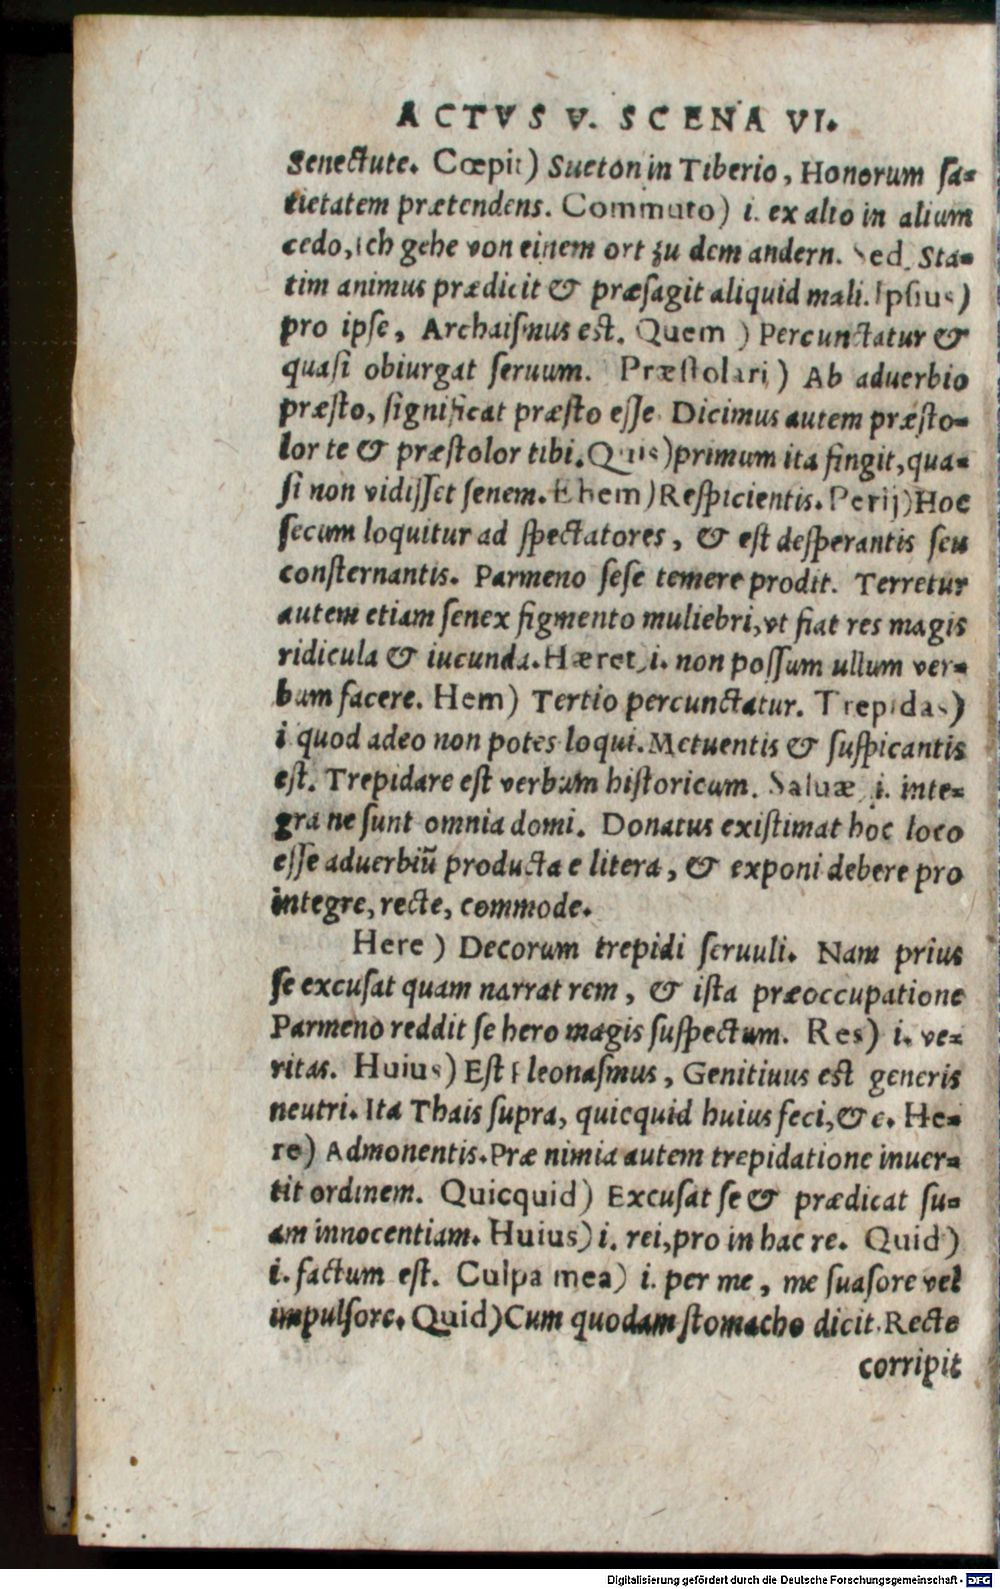 ACTVS V. SCENA VI.
Senectute. Cœpit) Sueton in Tiberio, Honorum sa-
tietatem prætendens. Commuto) i. ex alio in alium
cedo, ich gehe von einem ort zu dem andern. Sed) Sta-
tim animus prædicit & præsagit aliquid mali. Ipsius)
pro ipse, Archaismus est. Quem ) Percunctatur &
quasi obiurgat seruum. Præstolari) Ab aduerbio
præsto, significat præsto esse. Dicimus autem præsto-
lor te & præstolor tibi. Quis) primum ita fingit, qua-
si non vidisset senem. Ehem) Respicientis. Perij) Hoc
secum loquitur ad spectatores, & est desperantis seu
consternantis. Parmeno sese temere prodit. Terretur
autem etiam senex figmento muliebri, vt fiat res magis
ridicula & iucunda. Hæret) i. non possum ullum ver-
bum facere. Hem) Tertio percunctatur. Trepidas)
i quod adeo non potes loqui. Metuentis & suspicantis
est. Trepidare est verbum historicum. Saluæ) i. inte-
gra ne sunt omnia domi. Donatus existimat hoc loco
esse aduerbiũ producta e litera, & exponi debere pro
integre, recte, commode.
Here ) Decorum trepidi seruuli. Nam prius
se excusat quam narrat rem, & ista præoccupatione
Parmeno reddit se hero magis suspectum. Res) i. ve-
ritas. Huius) Est Pleonasmus, Genitiuus est generis
neutri. Ita Thais supra, quicquid huius feci, &c. He-
re) Admonentis. Præ nimia autem trepidatione inuer-
tit ordinem. Quicquid) Excusat se & prædicat su-
am innocentiam. Huius) i. rei, pro in hac re. Quid)
i. factum est. Culpa mea) i. per me, me suasore vel
impulsore. Quid) Cum quodam stomacho dicit. Recte
corripit
Digitalisierung gefördert durch die Deutsche Forschungsgemeinschaft - DFG